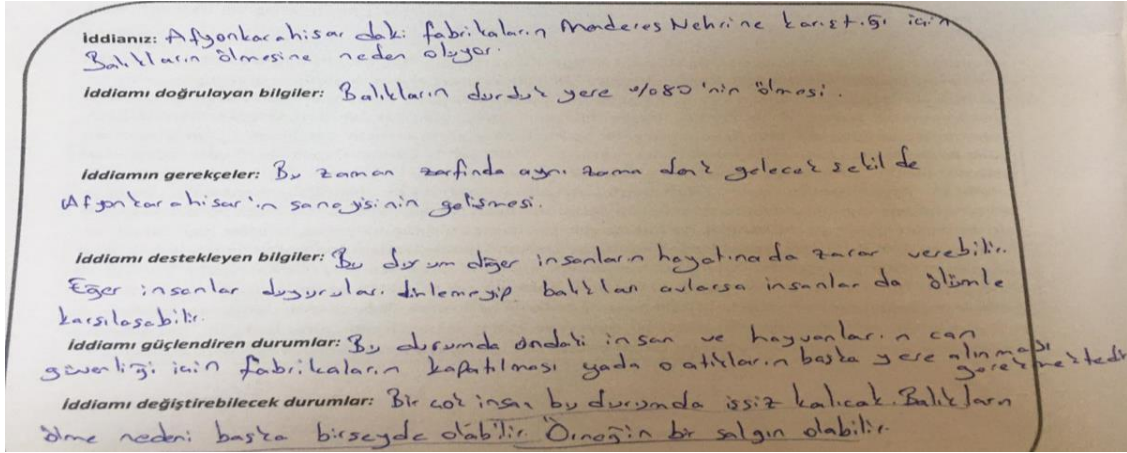 İddianız: Afyonkarahisar daki fabrikaların Menderes Nehrine karıştığı için
Balıkların ölmesine neden oluyor.
İddiamı doğrulayan bilgiler: Balıkların durduk yere %80 'nin ölmesi.
İddiamın gerekçeler: Bu zaman zarfında aynı zama denk gelecek sekil de
Afyonkarahisar'ın sanayisinin gelişmesi.
İddiamı destekleyen bilgiler: Bu durum diğer insanların hayatına da zarar verebilir.
Eğer insanlar duyuruları dinlemeyip balıkları avlarsa insanlar da ölümle
karşılaşabilir.
İddiamı güçlendiren durumlar: Bu durumda ondaki insan ve hayvanların can
güvenliği için fabrikaların kapatılması yada o atıkların başka yere alınması
gerekmektedir
İddiamı değiştirebilecek durumlar: Bir çok insan bu durumda issiz kalıcak. Balıkların
ölme nedeni başka birseyde olabilir. Örneğin bir salgın olabilir.